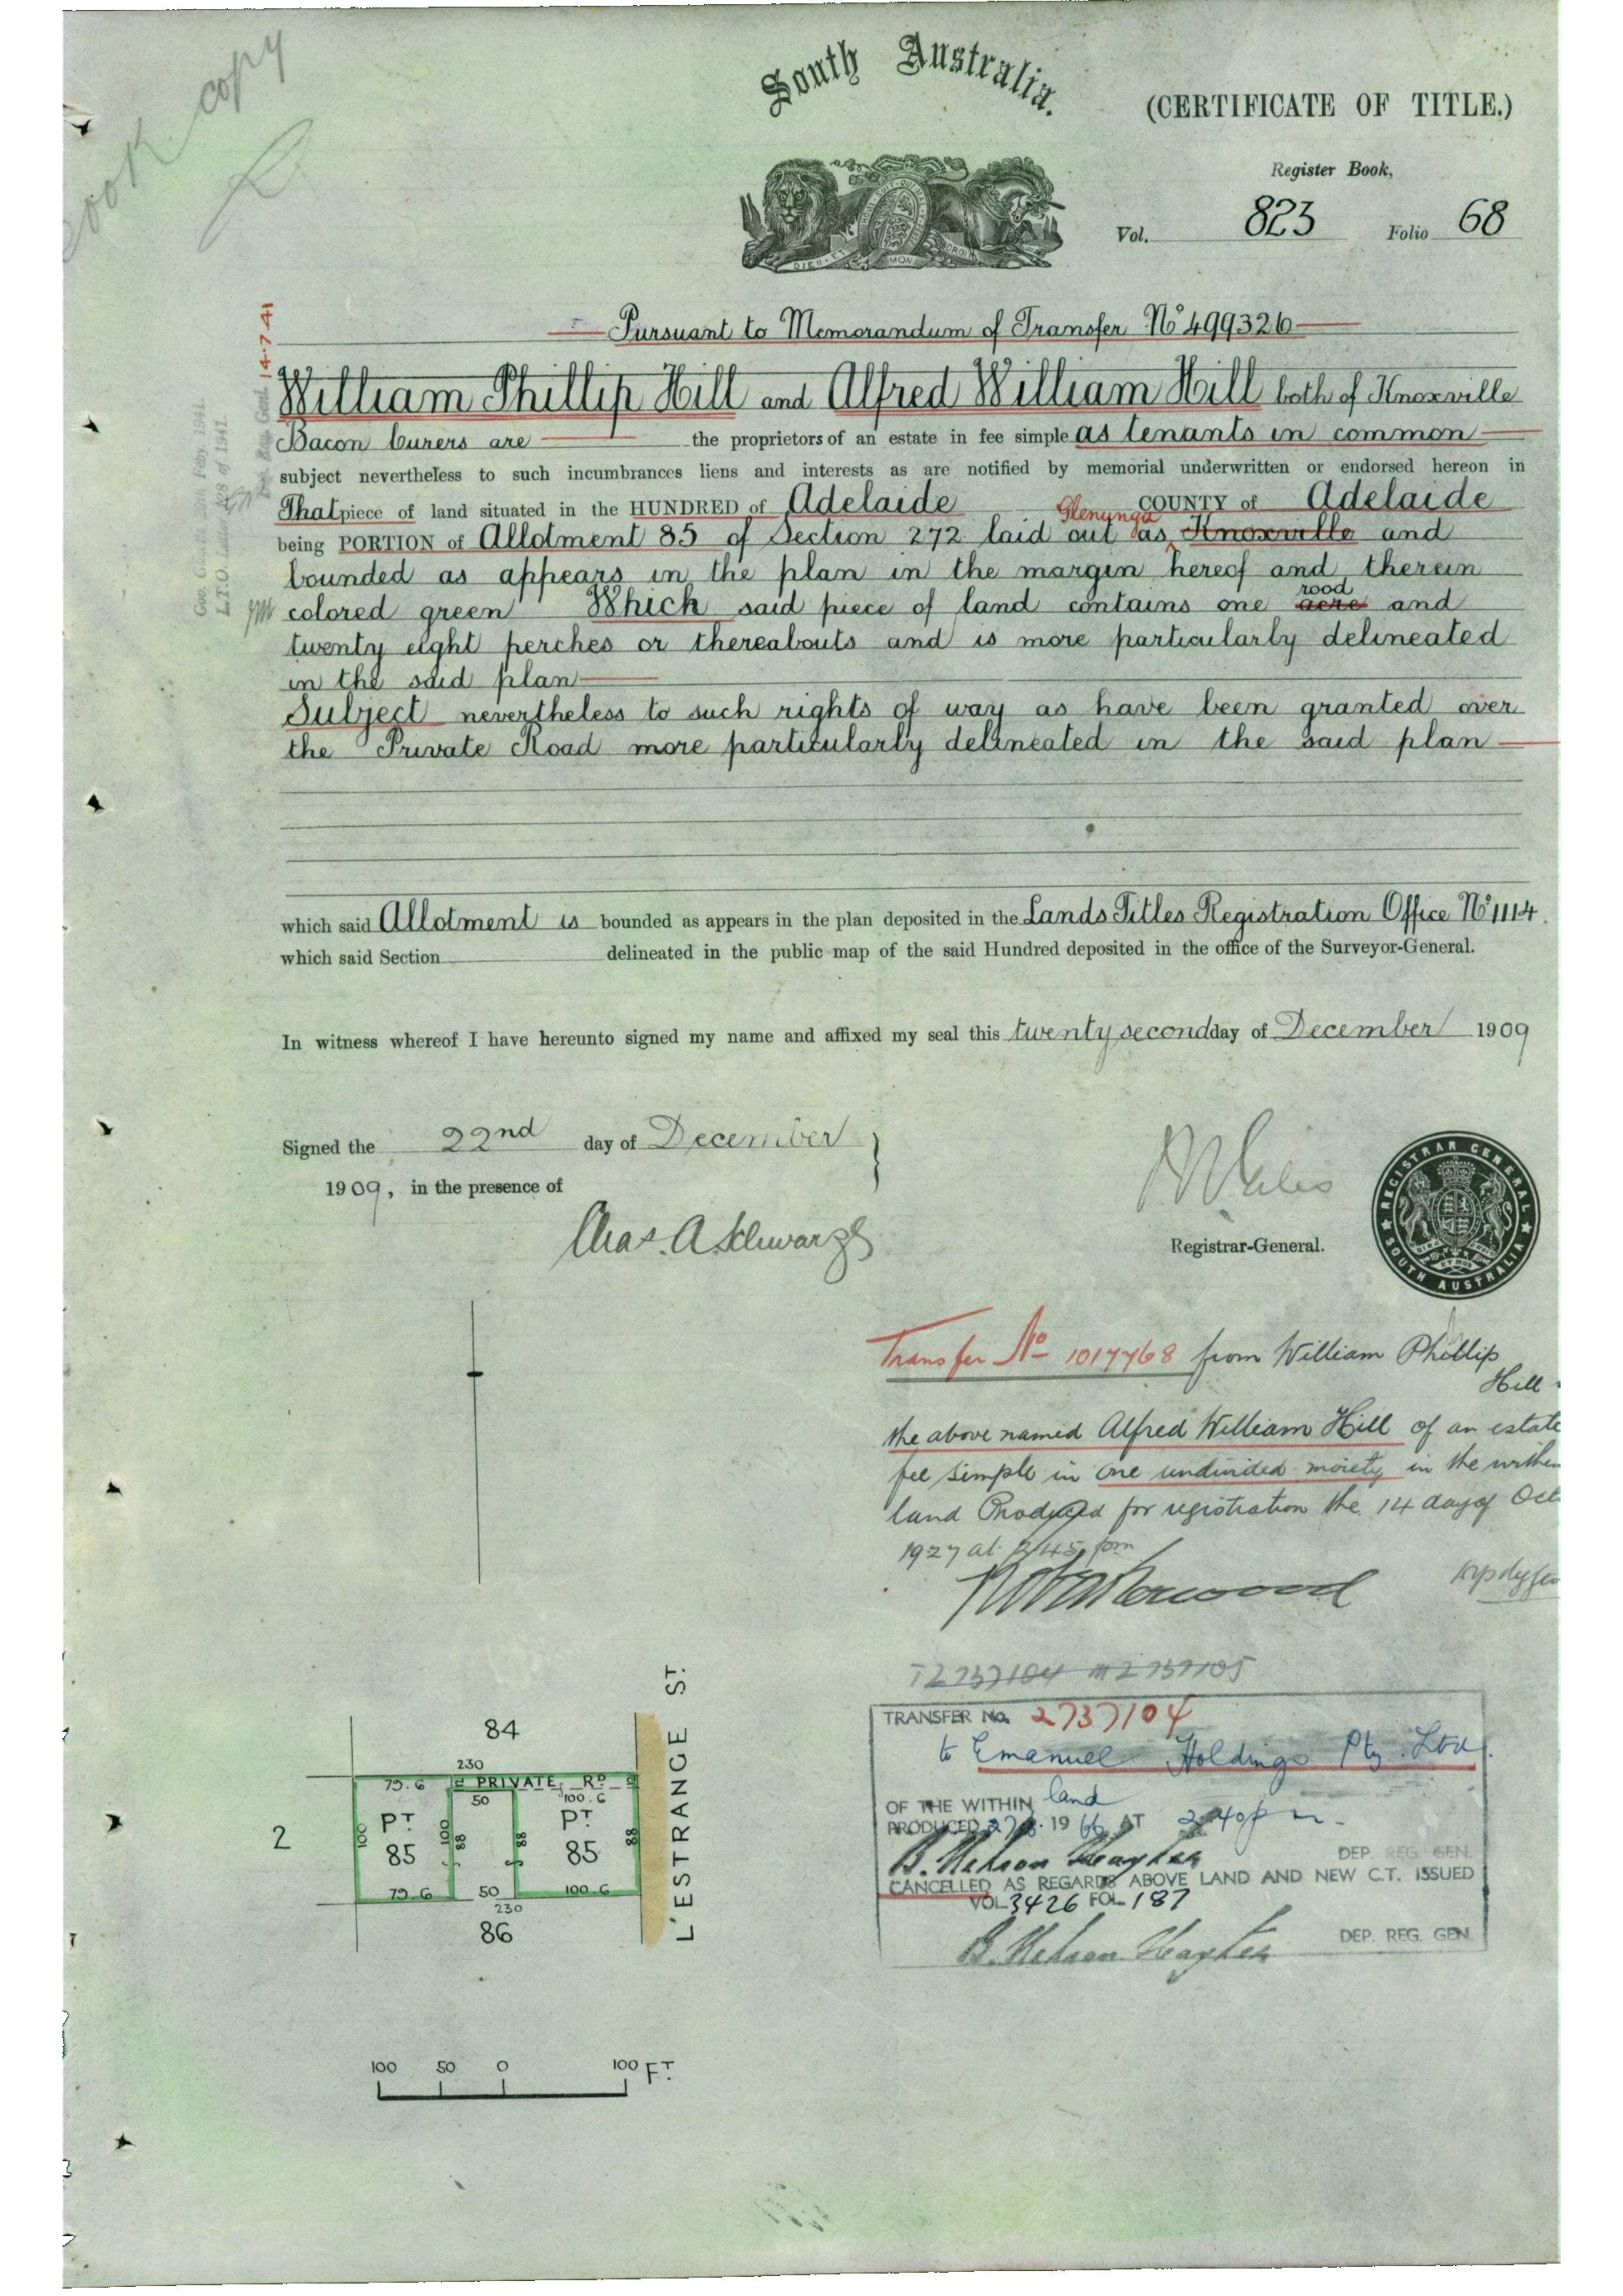 Book copy
South Australia.
(CERTIFICATE OF TITLE.)
Register Book,
Vol. 823 Folio 68
Pursuant to Memorandum of Transfer No 499326
14.7.41
William Phillip Hill and Alfred William Hill both of Knoxville
Bacon Curers are the proprietors of an estate in fee simple as tenants in common
subject nevertheless to such incumbrances liens and interests as are notified by memorial underwritten or endorsed hereon in
That piece of land situated in the HUNDRED of Adelaide COUNTY of Adelaide
Glenunga
being PORTION of Allotment 85 of Section 272 laid out as Knoxville and
bounded as appears in the plan in the margin hereof and therein
rood
colored green Which said piece of land contains one acre and
twenty eight perches or thereabouts and is more particularly delineated
in the said plan
Subject nevertheless to such rights of way as have been granted over
the Private Road more particularly delineated in the said plan
which said Allotment is bounded as appears in the plan deposited in the Lands Titles Registration Office No 1114.
which said Section delineated in the public map of the said Hundred deposited in the office of the Surveyor-General.
In witness whereof I have hereunto signed my name and affixed my seal this twenty second day of December 1909
Signed the 22nd day of December
1909, in the presence of
Chas. A. Schwarz
Registrar-General.
REGISTRAR GENERAL
SOUTH AUSTRALIA
Transfer No 1017768 from William Phillip
Hill
the above named Alfred William Hill of an estate
fee simple in one undivided moiety in the within
land Produced for registration the 14 day of Oct
1927 at 2/45 pm
T2737104 M2737105
TRANSFER No. 2737104
to Emanuel Holdings Pty. Ltd.
OF THE WITHIN land
PRODUCED 1966 AT 2.40 pm.
B. Nelson Hayter DEP. REG. GEN.
CANCELLED AS REGARDS ABOVE LAND AND NEW C.T. ISSUED
VOL 3426 FOL 187
B. Nelson Hayter DEP. REG. GEN.
84
230
79.6 PRIVATE RD
50 100.6
PT PT
100 100 88 88 88
2
85 85
79.6 50 100.6
230
86
L'ESTRANGE ST.
100 50 0 100 FT